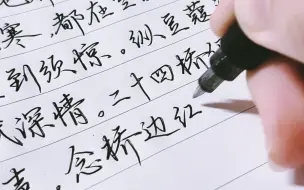 寒,都在空
到须惊。纵豆蔻
深情。二十四桥仍
声。念桥边红